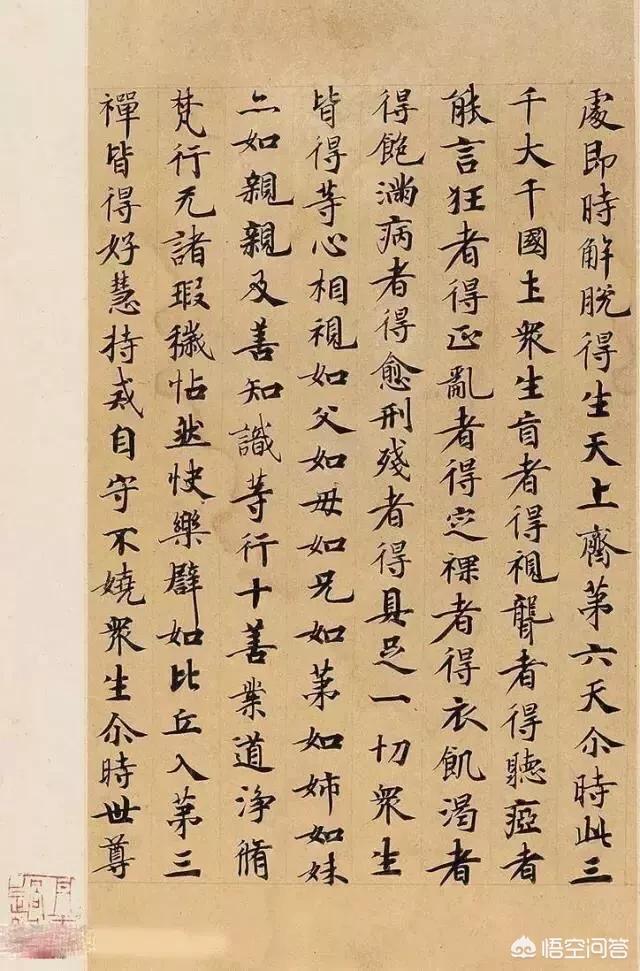 處即時解脫得生天上齊第六天尒時此三
千大千國土衆生盲者得視聾者得聽瘂者
能言狂者得正亂者得定裸者得衣飢渴者
得飽滿病者得愈刑殘者得具足一切衆生
皆得等心相視如父如母如兄如弟如姉如妹
亦如親親及善知識等行十善業道淨脩
梵行无諸瑕穢怗然快樂譬如比丘入第三
禪皆得好慧持戒自守不嬈衆生尒時世尊
悟空问答